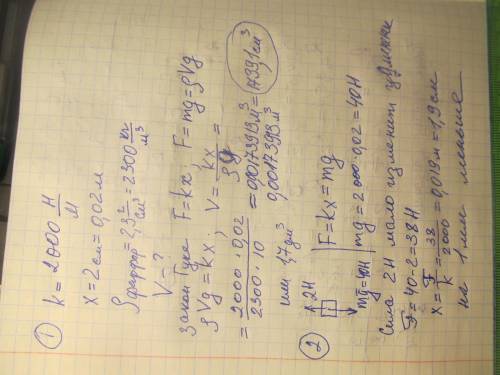 ① k = 2000 Н/м
x = 2 см = 0,02 м
ρ фарфор = 2,3 г/см³ = 2300 кг/м³
V = ?
Закон Гука F = kx, F = mg = ρVg
ρVg = kx, V = kx/ρg =
= 2000 · 0,02 / 2300 · 10 = 0,0017 3913 м³ = 1739,1 см³
0,0017 3913 м³
или 1,7 дм³
② 2Н F = kx = mg
mg = 40Н mg = 2000 · 0,02 = 40Н
Сила 2Н мало изменит удлинение
F = 40 - 2 = 38Н
x = F/k = 38/2000 = 0,019 м = 1,9 см
на 1 мм меньше